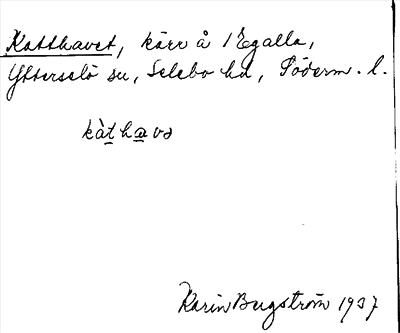 Katthavet, kärr å 1 Egalla,
Ytterselö sn, Selebo hd, Söderm. l.
kàt havə
Karin Bugström 1937